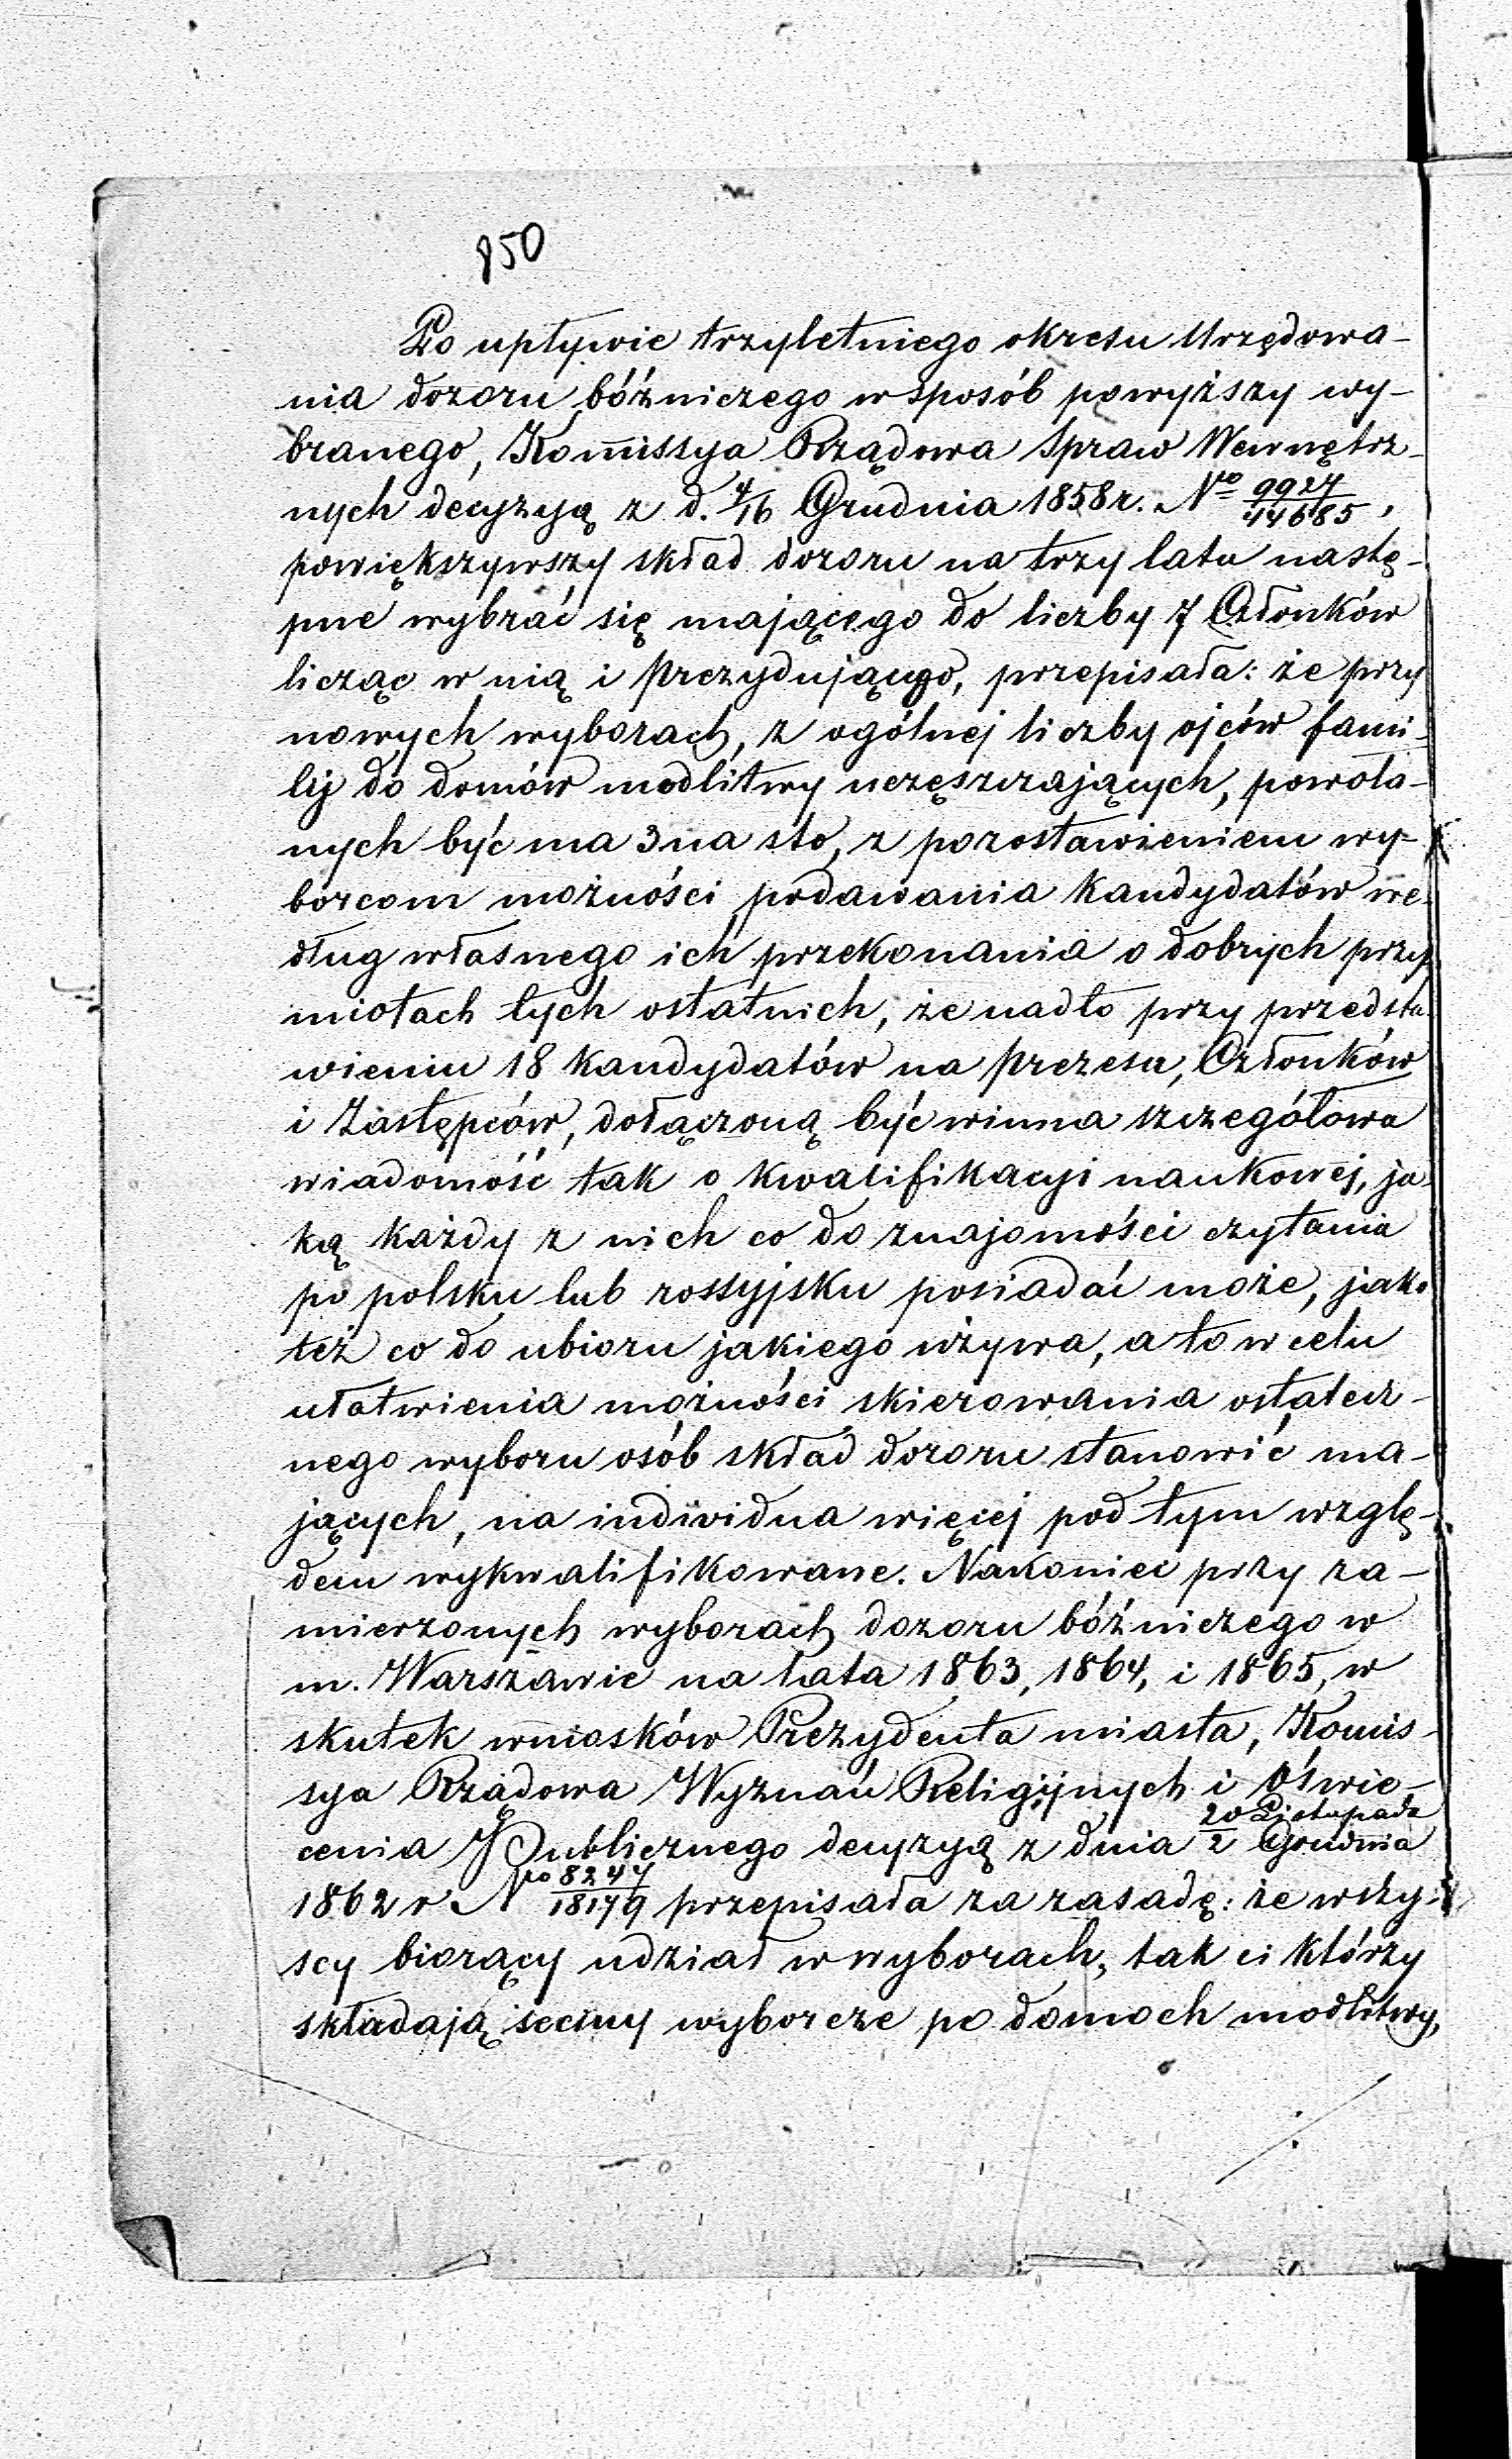 850
Po upływie trzyletniego okresu Urzędowa-
nia dozoru bóźniczego w sposób powyższy wy-
branego, Kommissya Rządowa Spraw Wewnętrz-
nych decyzyą z d. 4/16 Grudnia 1858 r. No 9927/44685,
powiększywszy skład dozoru na trzy lata nastę-
pne wybrać się mającego do liczby 7 Członków
licząc w nią i Prezydującego, przepisała: że przy
nowych wyborach, z ogólnej liczby ojców fami-
lij do domów modlitwy uczęszczających, powoła-
nych być ma 3 na sto, z pozostawieniem wy-
borcom możności podawania kandydatów we-
dług własnego ich przekonania o dobrych przy
miotach tych ostatnich, że nadto przy przedsta-
wieniu 18 kandydatów na prezesa, Członków
i Zastępców, dołączoną być winna szczegółowa
wiadomość tak o kwalifikacyi naukowej, ja-
ką każdy z nich co do znajomości czytania
po polsku lub rossyjsku posiadać może, jako
też co do ubioru jakiego używa, a to w celu
ułatwienia możności skierowania ostatecz-
nego wyboru osób skład dozoru stanowić ma-
jących, na individua więcej pod tym wzglę-
dem wykwalifikowane. Nakoniec przy za-
mierzonych wyborach dozoru bóźniczego w
m. Warszawie na lata 1863, 1864, i 1865, w
skutek wniosków Prezydenta miasta, Komis-
sya Rządowa Wyznań Religijnych i Oświe-
cenia Publicznego decyzyą z dnia 20 Listopada/2 Grudnia
1862 r No 8247/18179 przepisała za zasadę: że wszy-
scy biorący udział w wyborach, tak ci którzy
składają sceny wyborcze po domach modlitwy,